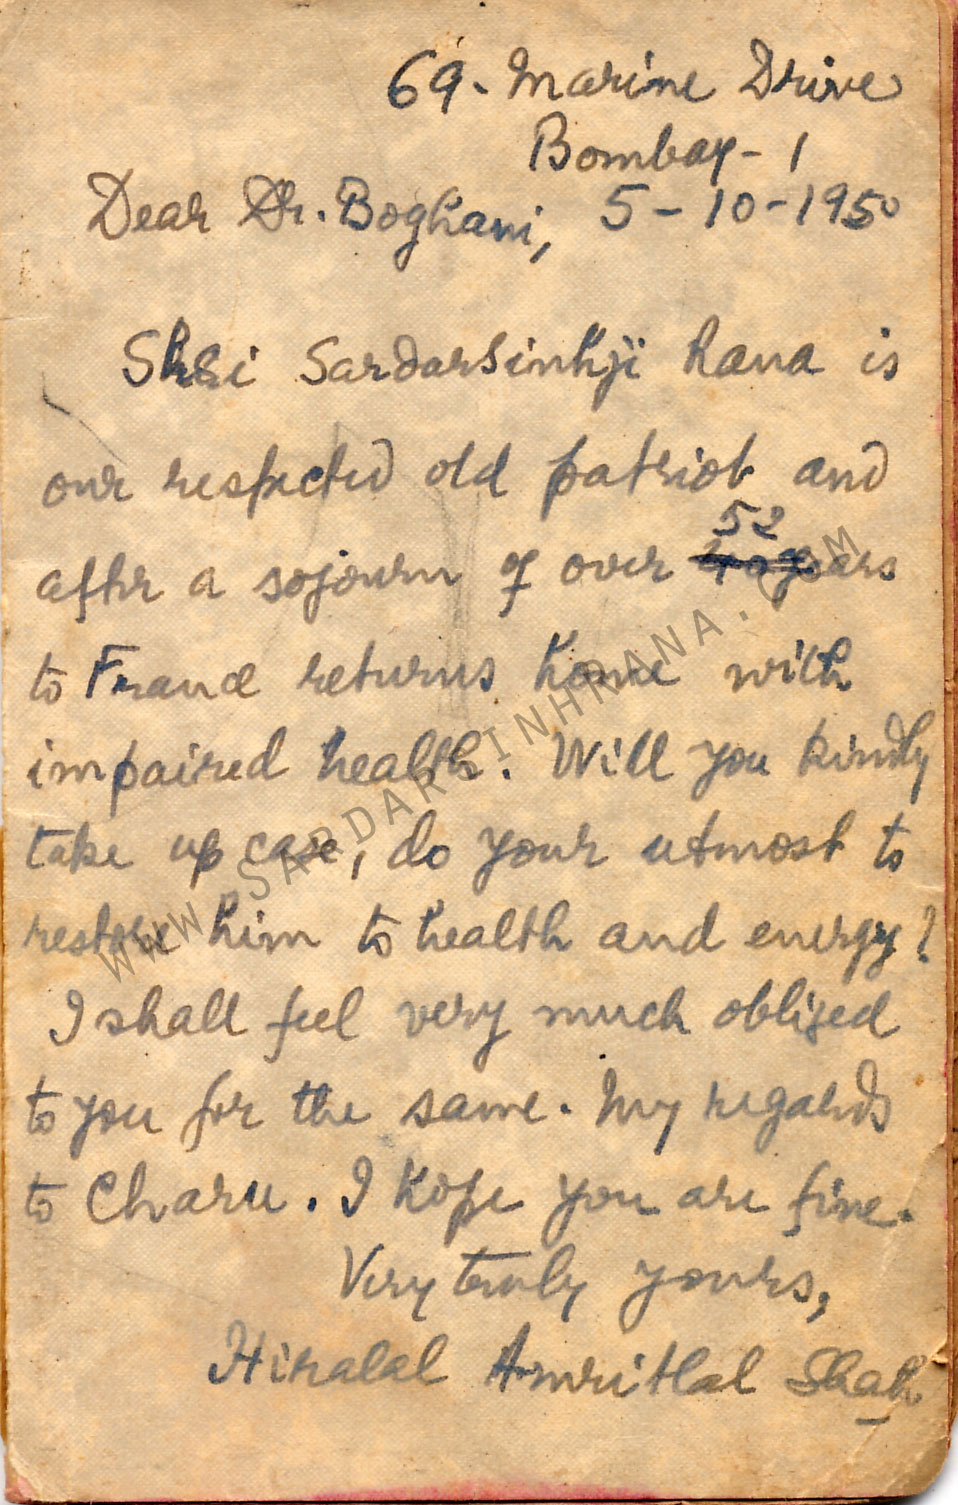 69. Marine Drive
Bombay - 1
Dear Dr. Boghani, 5-10-1950
Shri Sardarsinhji Rana is
our respected old patriot and
after a sojourn of over 52 years
to France returns home with
impaired health. Will you kindly
take up case, do your utmost to
restore him to health and energy?
I shall feel very much obliged
to you for the same. My regards
to Charu. I hope you are fine.
Very truly yours,
Hiralal Amritlal Shah
WWW.SARDARSINHRANA.COM